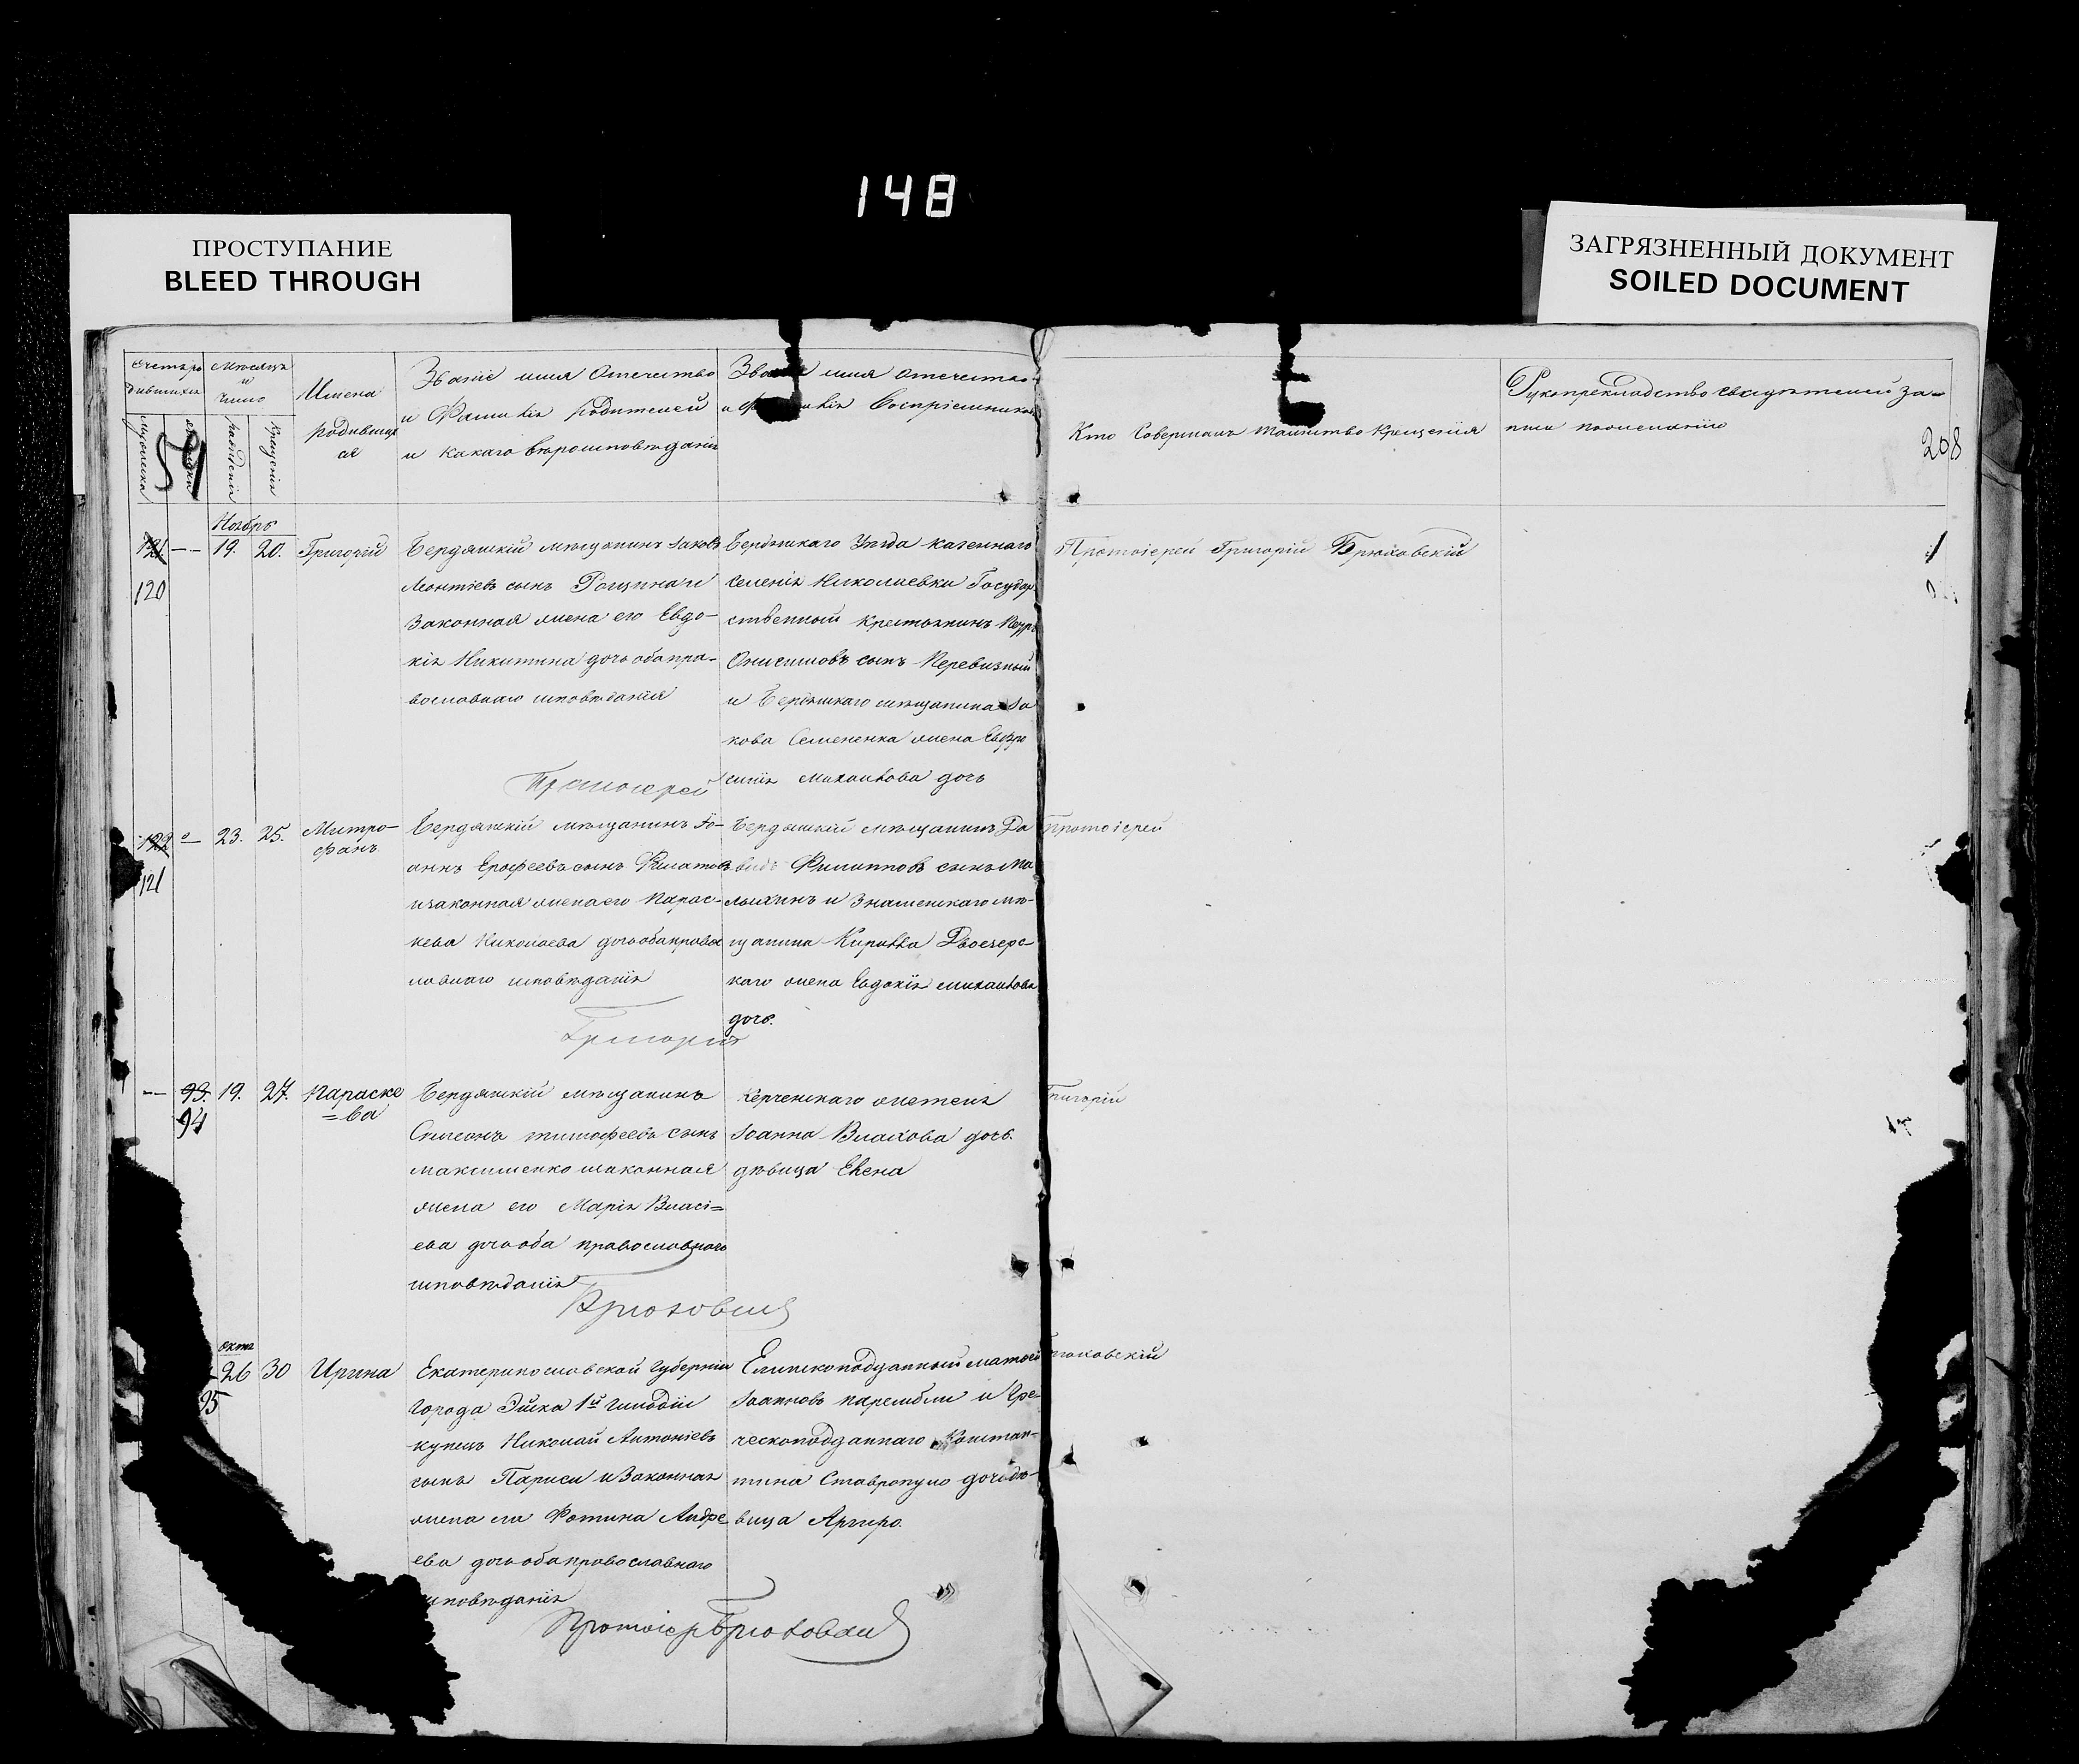 148
ПРОСТУПАНИЕ
BLEED THROUGH
ЗАГРЯЗНЕННЫЙ ДОКУМЕНТ
SOILED DOCUMENT
Мѣсяцъ
и
число
Имена
родивших
ся
Званіе имя Отечество
и Фамилія родителей
и какого вѣроисповѣданія
имя отечество
воспріемниковъ
Кто Совершалъ таинство Крещенія
Рукоприкладство свидѣтелей за-
208
рожденія
Крещенія
Ноябрь
121
120
19. 20. Григорій
Бердянскій мѣщанинъ Іаковъ
Леонтіевъ сынъ
Законная жена его Евдо-
кія Никитина дочь оба пра-
вославнаго исповѣданія
Бердянскаго Уѣзда казеннаго
селенія Николаевки Государ
ственный крестьянинъ Петръ
Онисимовъ сынъ Перевизный
и Бердянскаго мѣщанина Іа
кова Семененка жена Евфро
синія Михаилова дочь
Протоіерей Григорій Брюховскій
Протоіерей
122
121
23. 25. Митро-
фанъ
Бердянскій мѣщанинъ Іо-
аннъ Ерофеевъ сынъ Филатовъ
и законная жена его Парас-
кева Николаева дочь оба правос
лавнаго исповѣданія
Бердянскій мѣщанинъ Да
видъ Филипповъ сынъ Ма
лыхинъ и Знаменскаго мѣ-
щанина Кирилла
каго жена Евдокія Михаилова
дочь.
Протоіерей
Григорій
93.
94
19. 27. Параске
=ва
Бердянскій мѣщанинъ
Симеонъ Тимофеевъ сынъ
Максименко и законная
жена его Марія Власі=
ева дочь оба православнаго
исповѣданія
Керченскаго жителя
Іоанна Влахова дочь
дѣвица Елена
Григорій
Брюховскій
окт
26 30 Ирина
95
Екатеринославской Губерніи
Города Эйска 1й Гильдіи
купецъ Николай Антоніевъ
сынъ Париси и Законная
жена его Фотина Андре
ева дочь оба православнаго
исповѣданія
Еллинскоподданный Матѳей
Іоанновъ и Гре-
ческоподданнаго Констан-
тина Ставропуло дочь дѣ-
вица Аргиро.
Протоіер Брюховскій